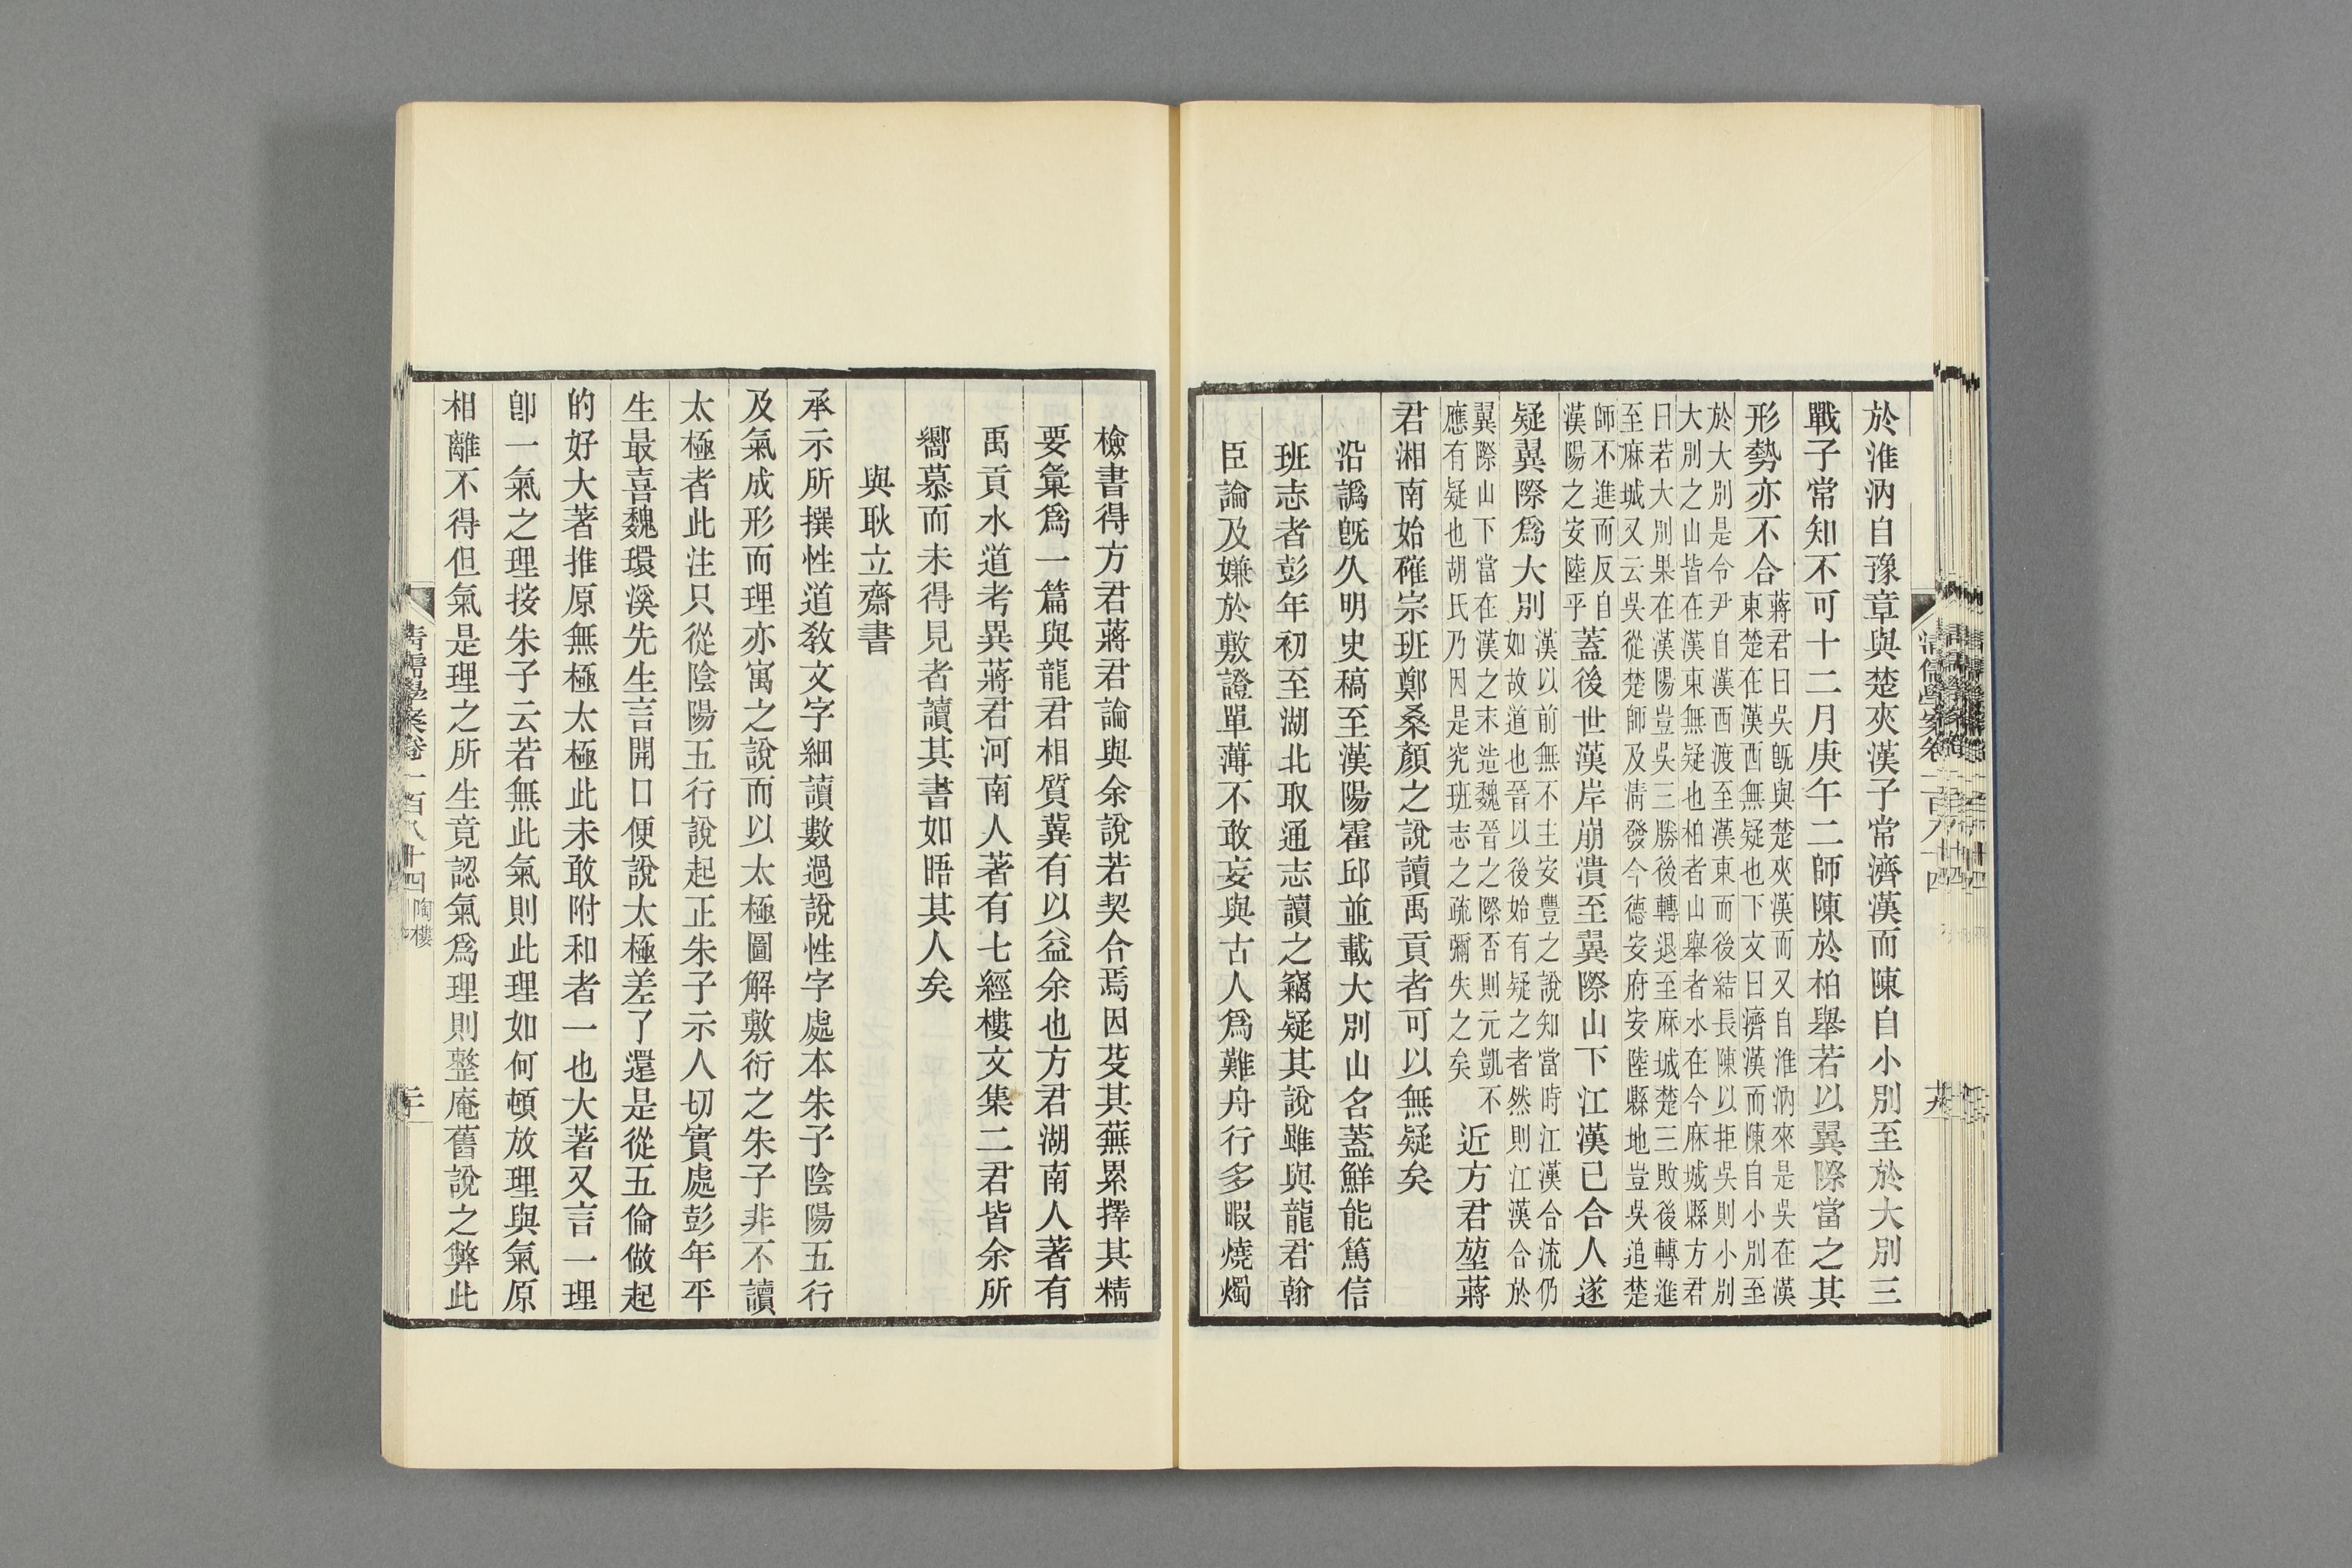 於淮汭自豫章與楚夾漢子常濟漢而陳自小別至於大別三
戰子常知不可十二月庚午二師陳於柏舉若以翼際當之其
形勢亦不合
蔣君曰吳旣與楚夾漢而又自淮汭來是吳在漢
東楚在漢西無疑也下文曰濟漢而陳自小別至
於大別是令尹自漢西渡至漢東而後結長陳以拒吳則小別
大別之山皆在漢東無疑也柏者山舉者水在今麻城縣方君
曰若大別果在漢陽豈吳三勝後轉退至麻城楚三敗後轉進
至麻城又云吳從楚師及凊發今德安府安陸縣地豈吳追楚
師不進而反自
漢陽之安陸乎
蓋後世漢岸崩潰至翼際山下江漢已合人遂
疑翼際爲大別
漢以前無不主安豐之說知當時江漢合流仍
如故道也晉以後始有疑之者然則江漢合於
翼際山下當在漢之末造魏晉之際否則元凱不
應有疑也胡氏乃因是究班志之疏彌失之矣
近方君堃蔣
君湘南始確宗班鄭桑顏之說讀禹貢者可以無疑矣
沿譌旣久明史稿至漢陽霍邱並載大別山名蓋鮮能篤信
班志者彭年初至湖北取通志讀之竊疑其說雖與龍君翰
臣論及嫌於敷證單薄不敢妄與古人爲難舟行多暇燒燭
檢書得方君蔣君論與余說若契合焉因芟其蕪累擇其精
要彙爲一篇與龍君相質冀有以益余也方君湖南人著有
禹貢水道考異蔣君河南人著有七經樓文集二君皆余所
嚮慕而未得見者讀其書如晤其人矣
與耿立齋書
承示所撰性道敎文字細讀數過說性字處本朱子陰陽五行
及氣成形而理亦寓之說而以太極圖解敷衍之朱子非不讀
太極者此注只從陰陽五行說起正朱子示人切實處彭年平
生最喜魏環溪先生言開口便說太極差了還是從五倫做起
的好大著推原無極太極此未敢附和者一也大著又言一理
卽一氣之理按朱子云若無此氣則此理如何頓放理與氣原
相離不得但氣是理之所生竟認氣爲理則整庵舊說之弊此
清儒學案卷一百八十四 陶樓